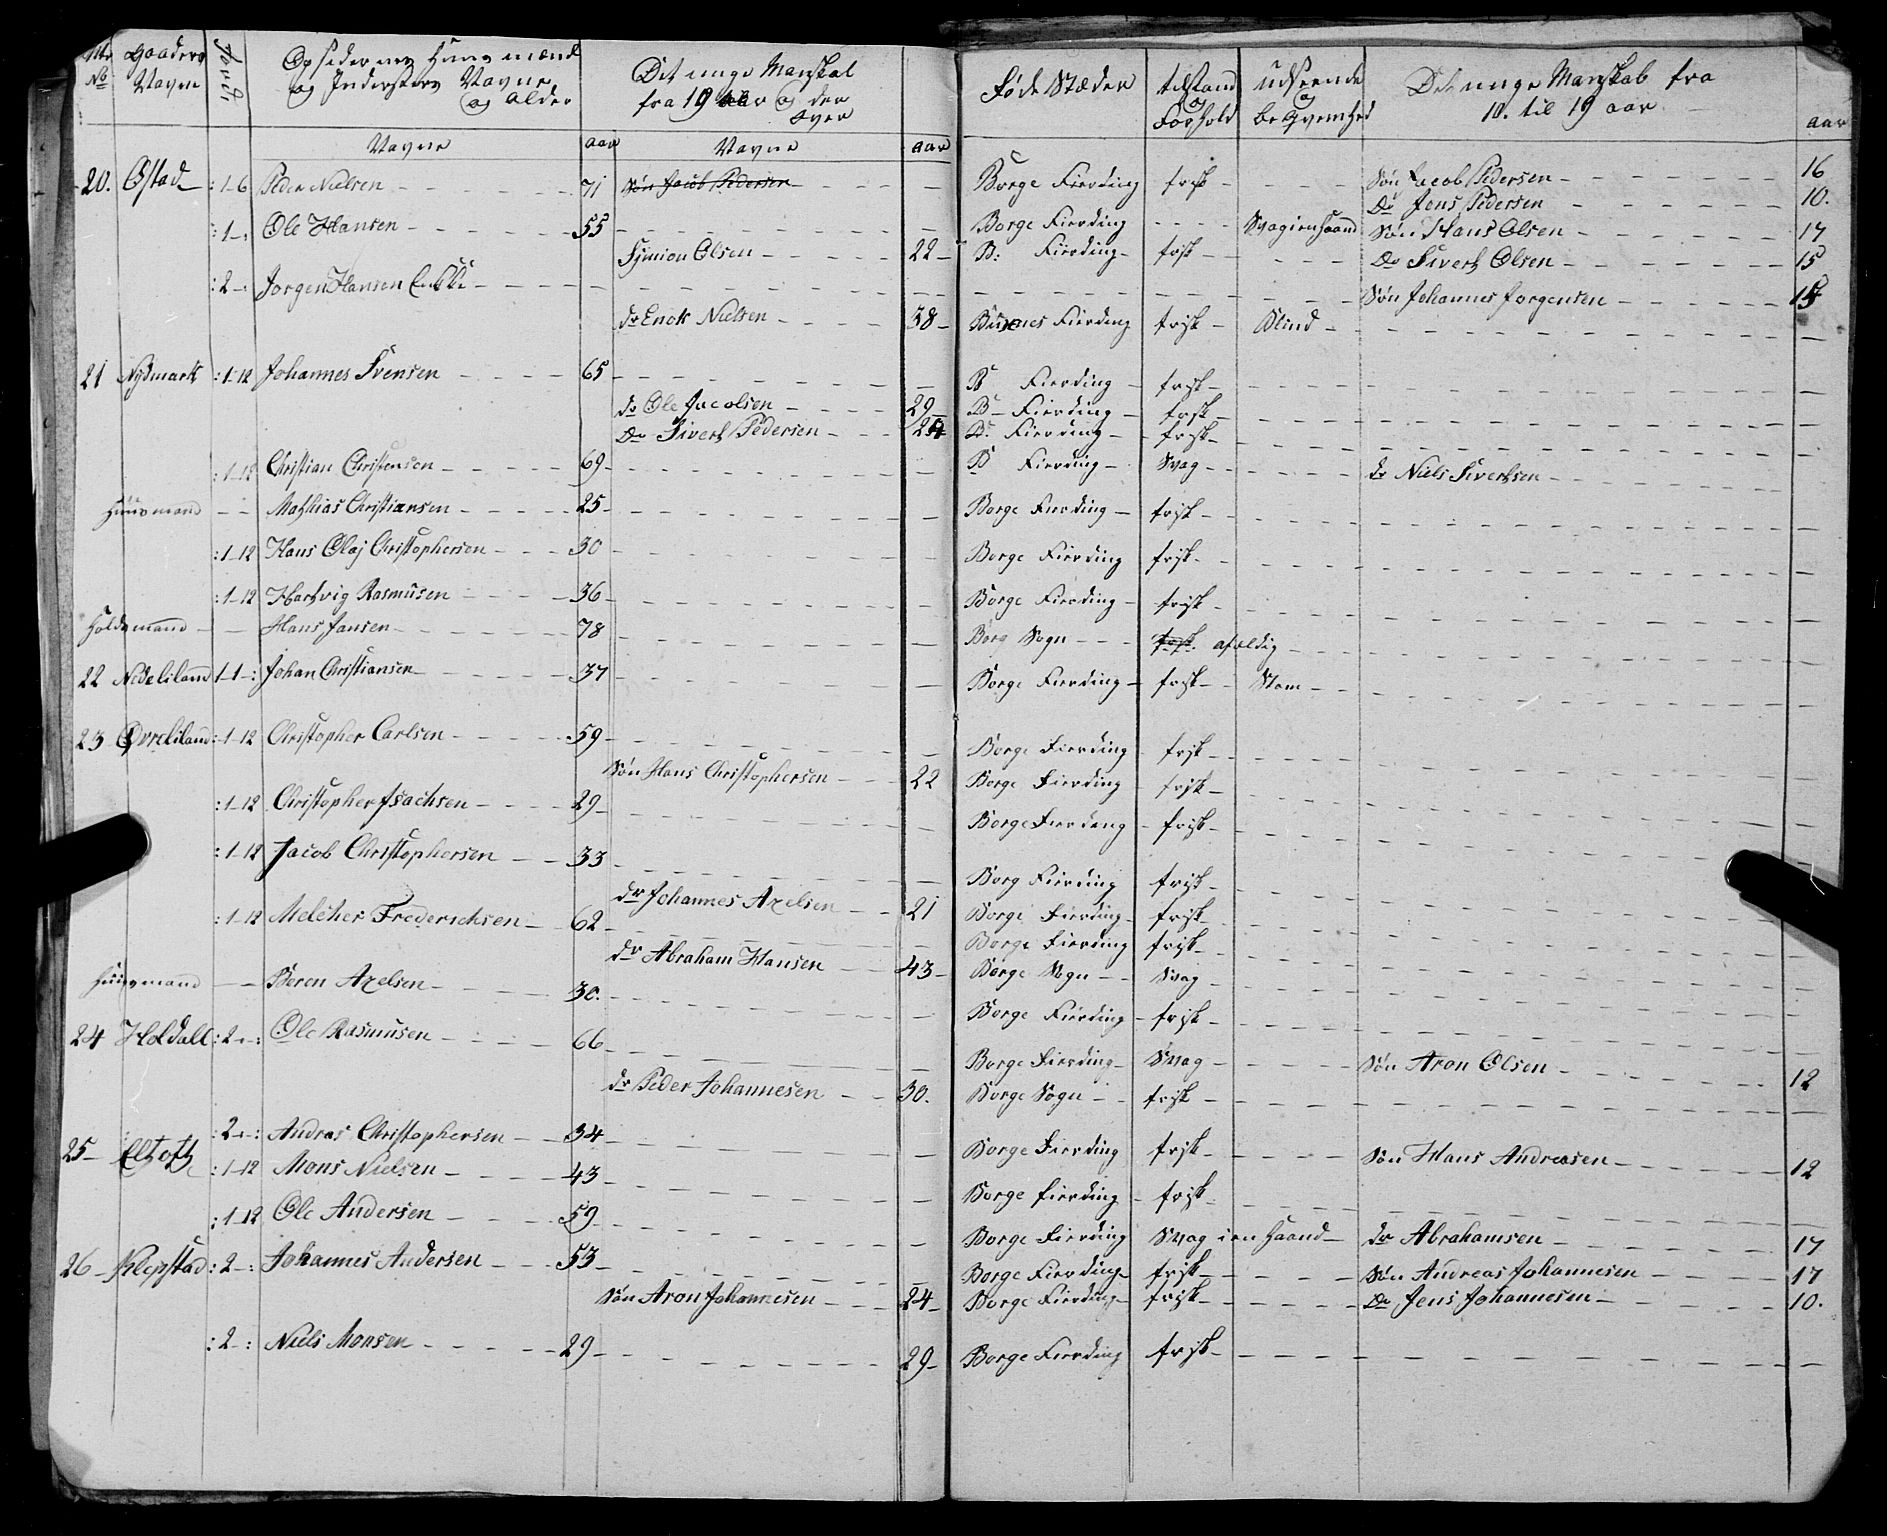 Mt No Gaarders Navne Jords Opsidernes Huusmænd og Indersters Navne og Alder Det unge Manskal fra 19 aar og der Over Føde Stæder tilstand og Forhold udseende og beqvemhed Det unge Manskab fra 10. til 19 aar aar
Navne aar Navne aar
20. Østad :1-6 Peder Nielsen 71 Søn Jacob Pedersen Borge Fierding frisk Søn Jacob Pedersen 16
Do Jens Pedersen 10.
:1-: Ole Hansen 55 Borge Fierding Svag i en Haand Søn Hans Olsen 17
Symion Olsen 22 B: Fierding frisk Do Sivert Olsen 15
:2-: Jorgen Hansen Enkke Søn Johannes Jorgensen 15
dr Enok Nielsen 38 Buxnes Fierding frisk Blind
21 Nydmark :1-12 Johannes Svensen 65 B Fierding frisk
dr Ole Jacobsen 29 B Fierding frisk
Do Sivert Pedersen 24 B. Fierding frisk
:1-12 Christian Christensen 69 B Fierding Svag dr Niels Sivertsen
Huusmand Mathias Christiansen 25 Borge Fierding frisk
:1-12 Hans Olaj Christophersen 30 Borge Fierding frisk
:1-12 Hartvig Rasmusen 36 Borge Fierding frisk
Holdsmand Hans Jansen 78 Borg Sogn frisk. afældig
22 Nedeliland 1-1-: Johan Christiansen 37 Borge Fierding frisk Stom
23 Øvreliland :1-12 Christopher Carlsen 59 Borge Fierding frisk
Søn Hans Christophersen 22 Borge Fierding frisk
:1-12 Christopher Isachsen 29 Borge Fierding frisk
:1-12 Jacob Christophersen 33 Borg Fierding frisk
dr Johannes Axelsen 21 Borge Fierding frisk
:1-12 Melcher Frederichsen 62 Borge Fierding frisk
dr Abraham Hansen 43 Borge Sogn Svag
Huusmand Beren Axelsen 30. Borge Fierding frisk
24 Holdall :2-: Ole Rasmusen 66 Borge Fierding Svag Søn Aron Olsen 12
dr Peder Johannesen 30. Borge Sogn frisk
:2-: Andras Christophersen 34 Borge Fierding frisk Søn Hans Andreasen 12
25 Eltoft :1-12 Mons Nielsen 43 Borge fierding frisk
:1-12 Ole Andersen 59 Borge Fierding Svag i en Haand dr Abrahamsen 17
26 Klepstad :2-: Johannes Andersen 53 Borge Fierding frisk Søn Andreas Johannesen 17
Søn Aron Johannesen 24 Borge Fierding frisk Do Jens Johannesen 10.
:2-: Niels Monsen 29 29 Borge Fierding frisk